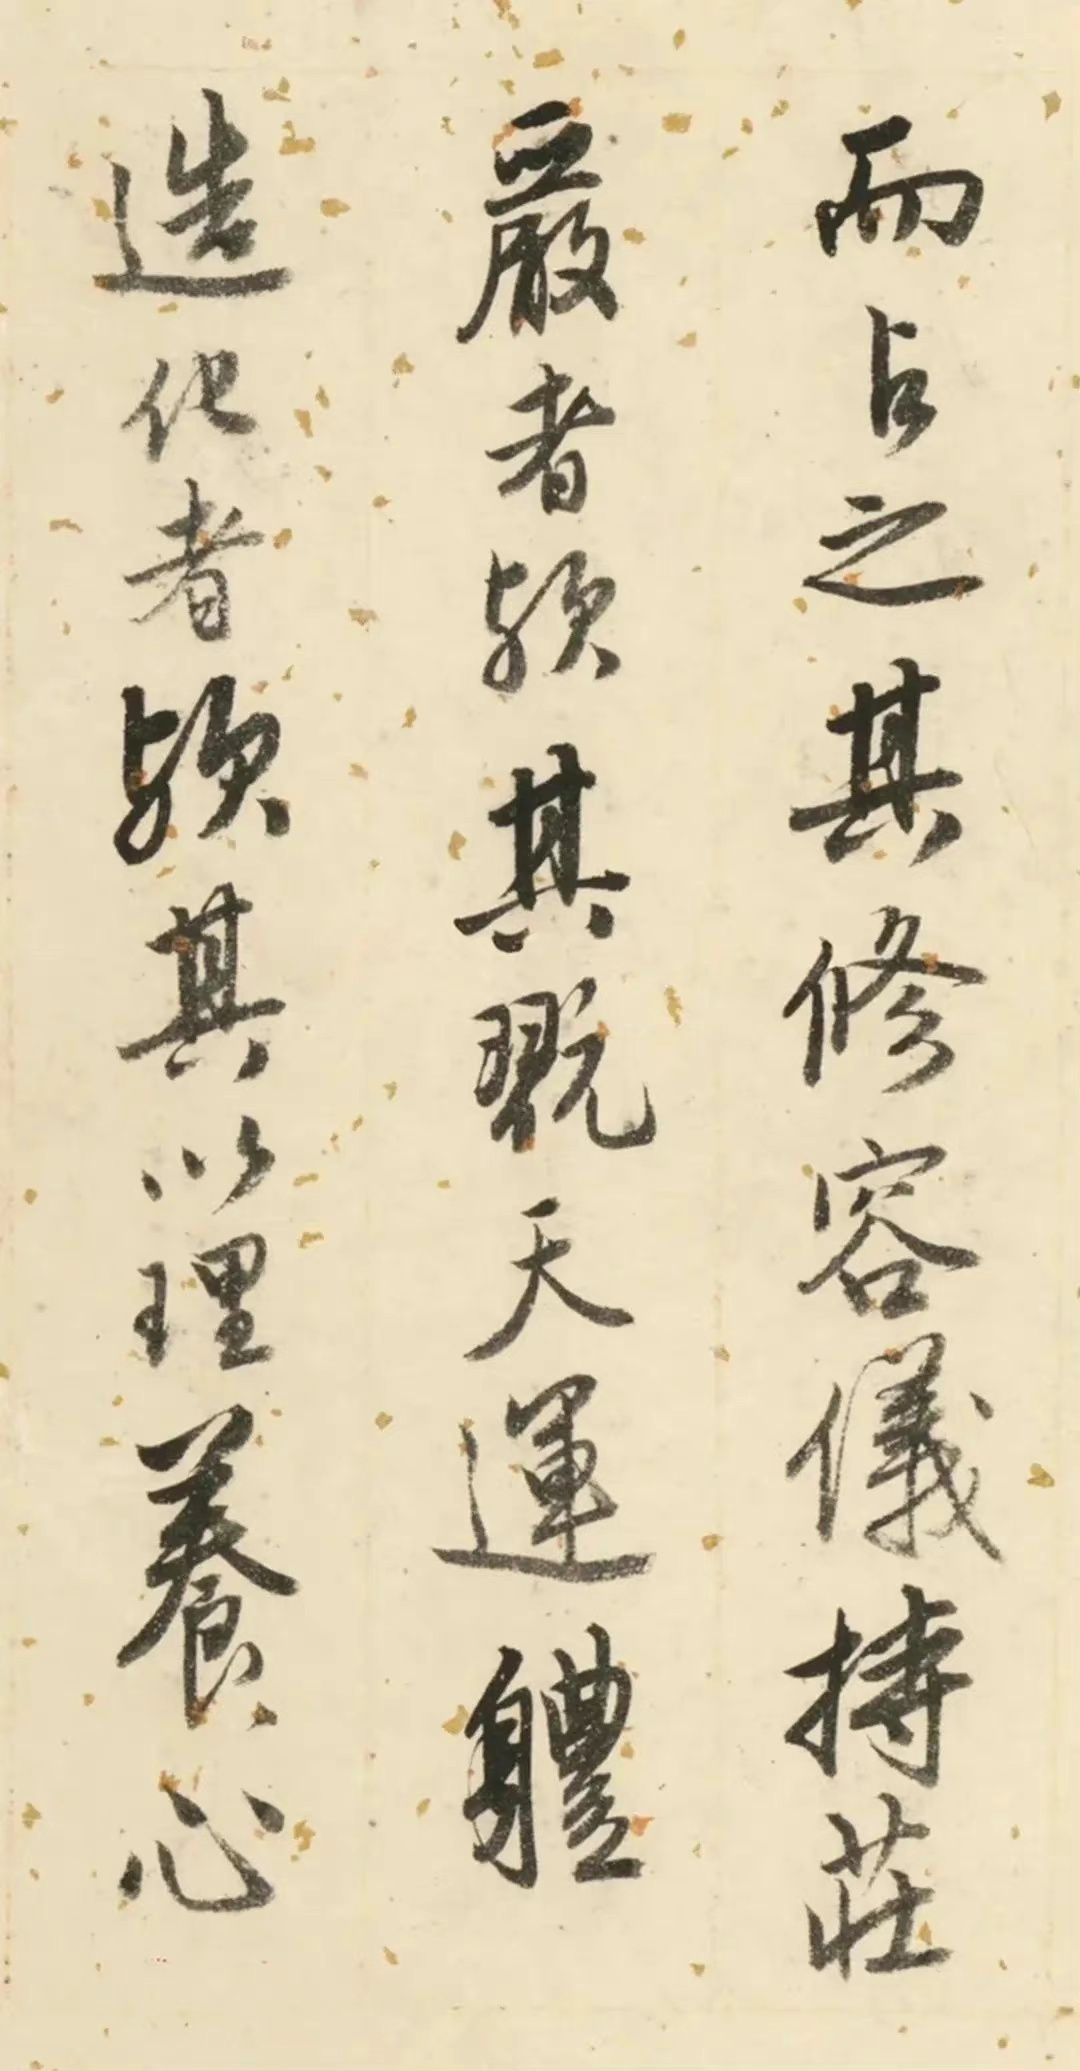 而占之其修容儀持莊
嚴者欤其翫天運軆
造化者欤其以理養心